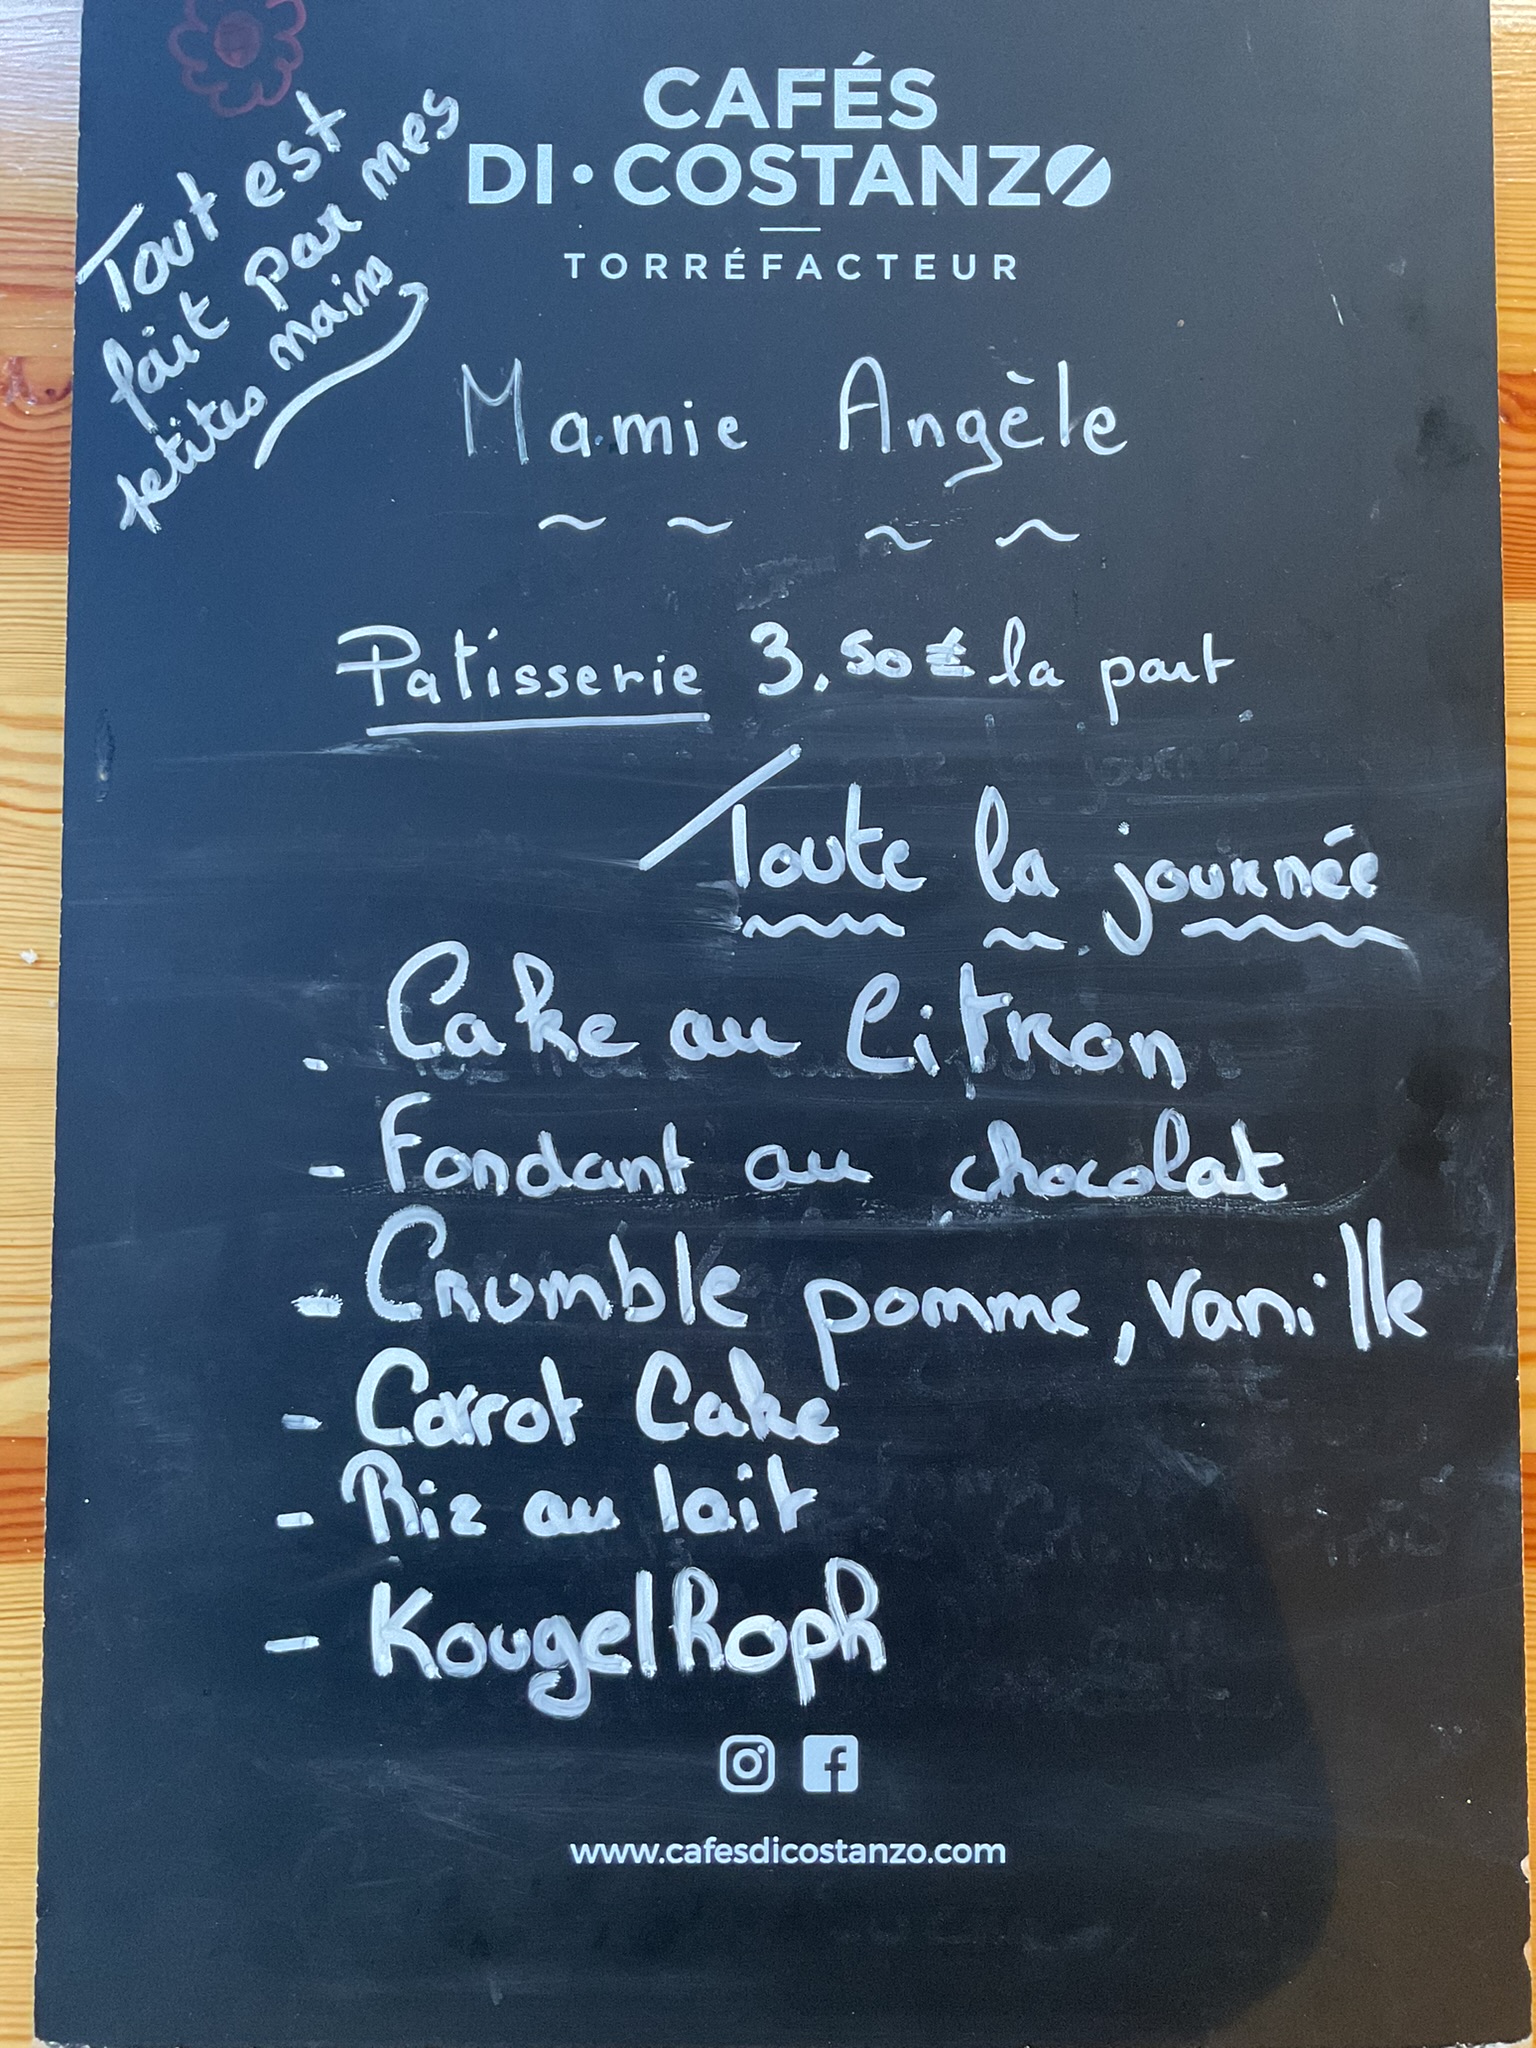 CAFÉS
DI•COSTANZO
TORRÉFACTEUR
Tout est
fait par mes
petites mains
Mamie Angèle
~ ~ ~ ~
Patisserie 3.50€ la part
Toute la journée
- Cake au Citron
- Fondant au chocolat
- Crumble pomme, vanille
- Carrot Cake
- Riz au lait
- Kougelhoph
www.cafesdicostanzo.com